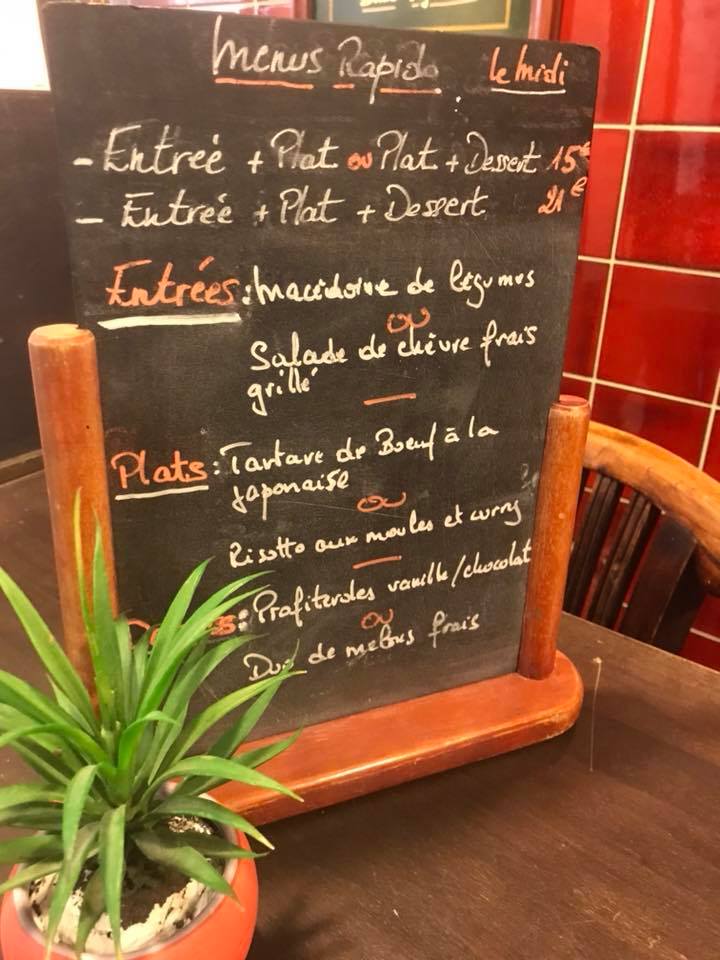 Menus Rapido le midi
- Entreé + Plat ou Plat + Dessert 15€
- Entreé + Plat + Dessert 21€
Entrées: Macédoine de légumes
ou
Salade de chèvre frais
grillé
Plats: Tartare de Boeuf à la
japonaise
ou
Risotto aux moules et curry
Profiteroles vanille/chocolat
ou
Duo de melons frais